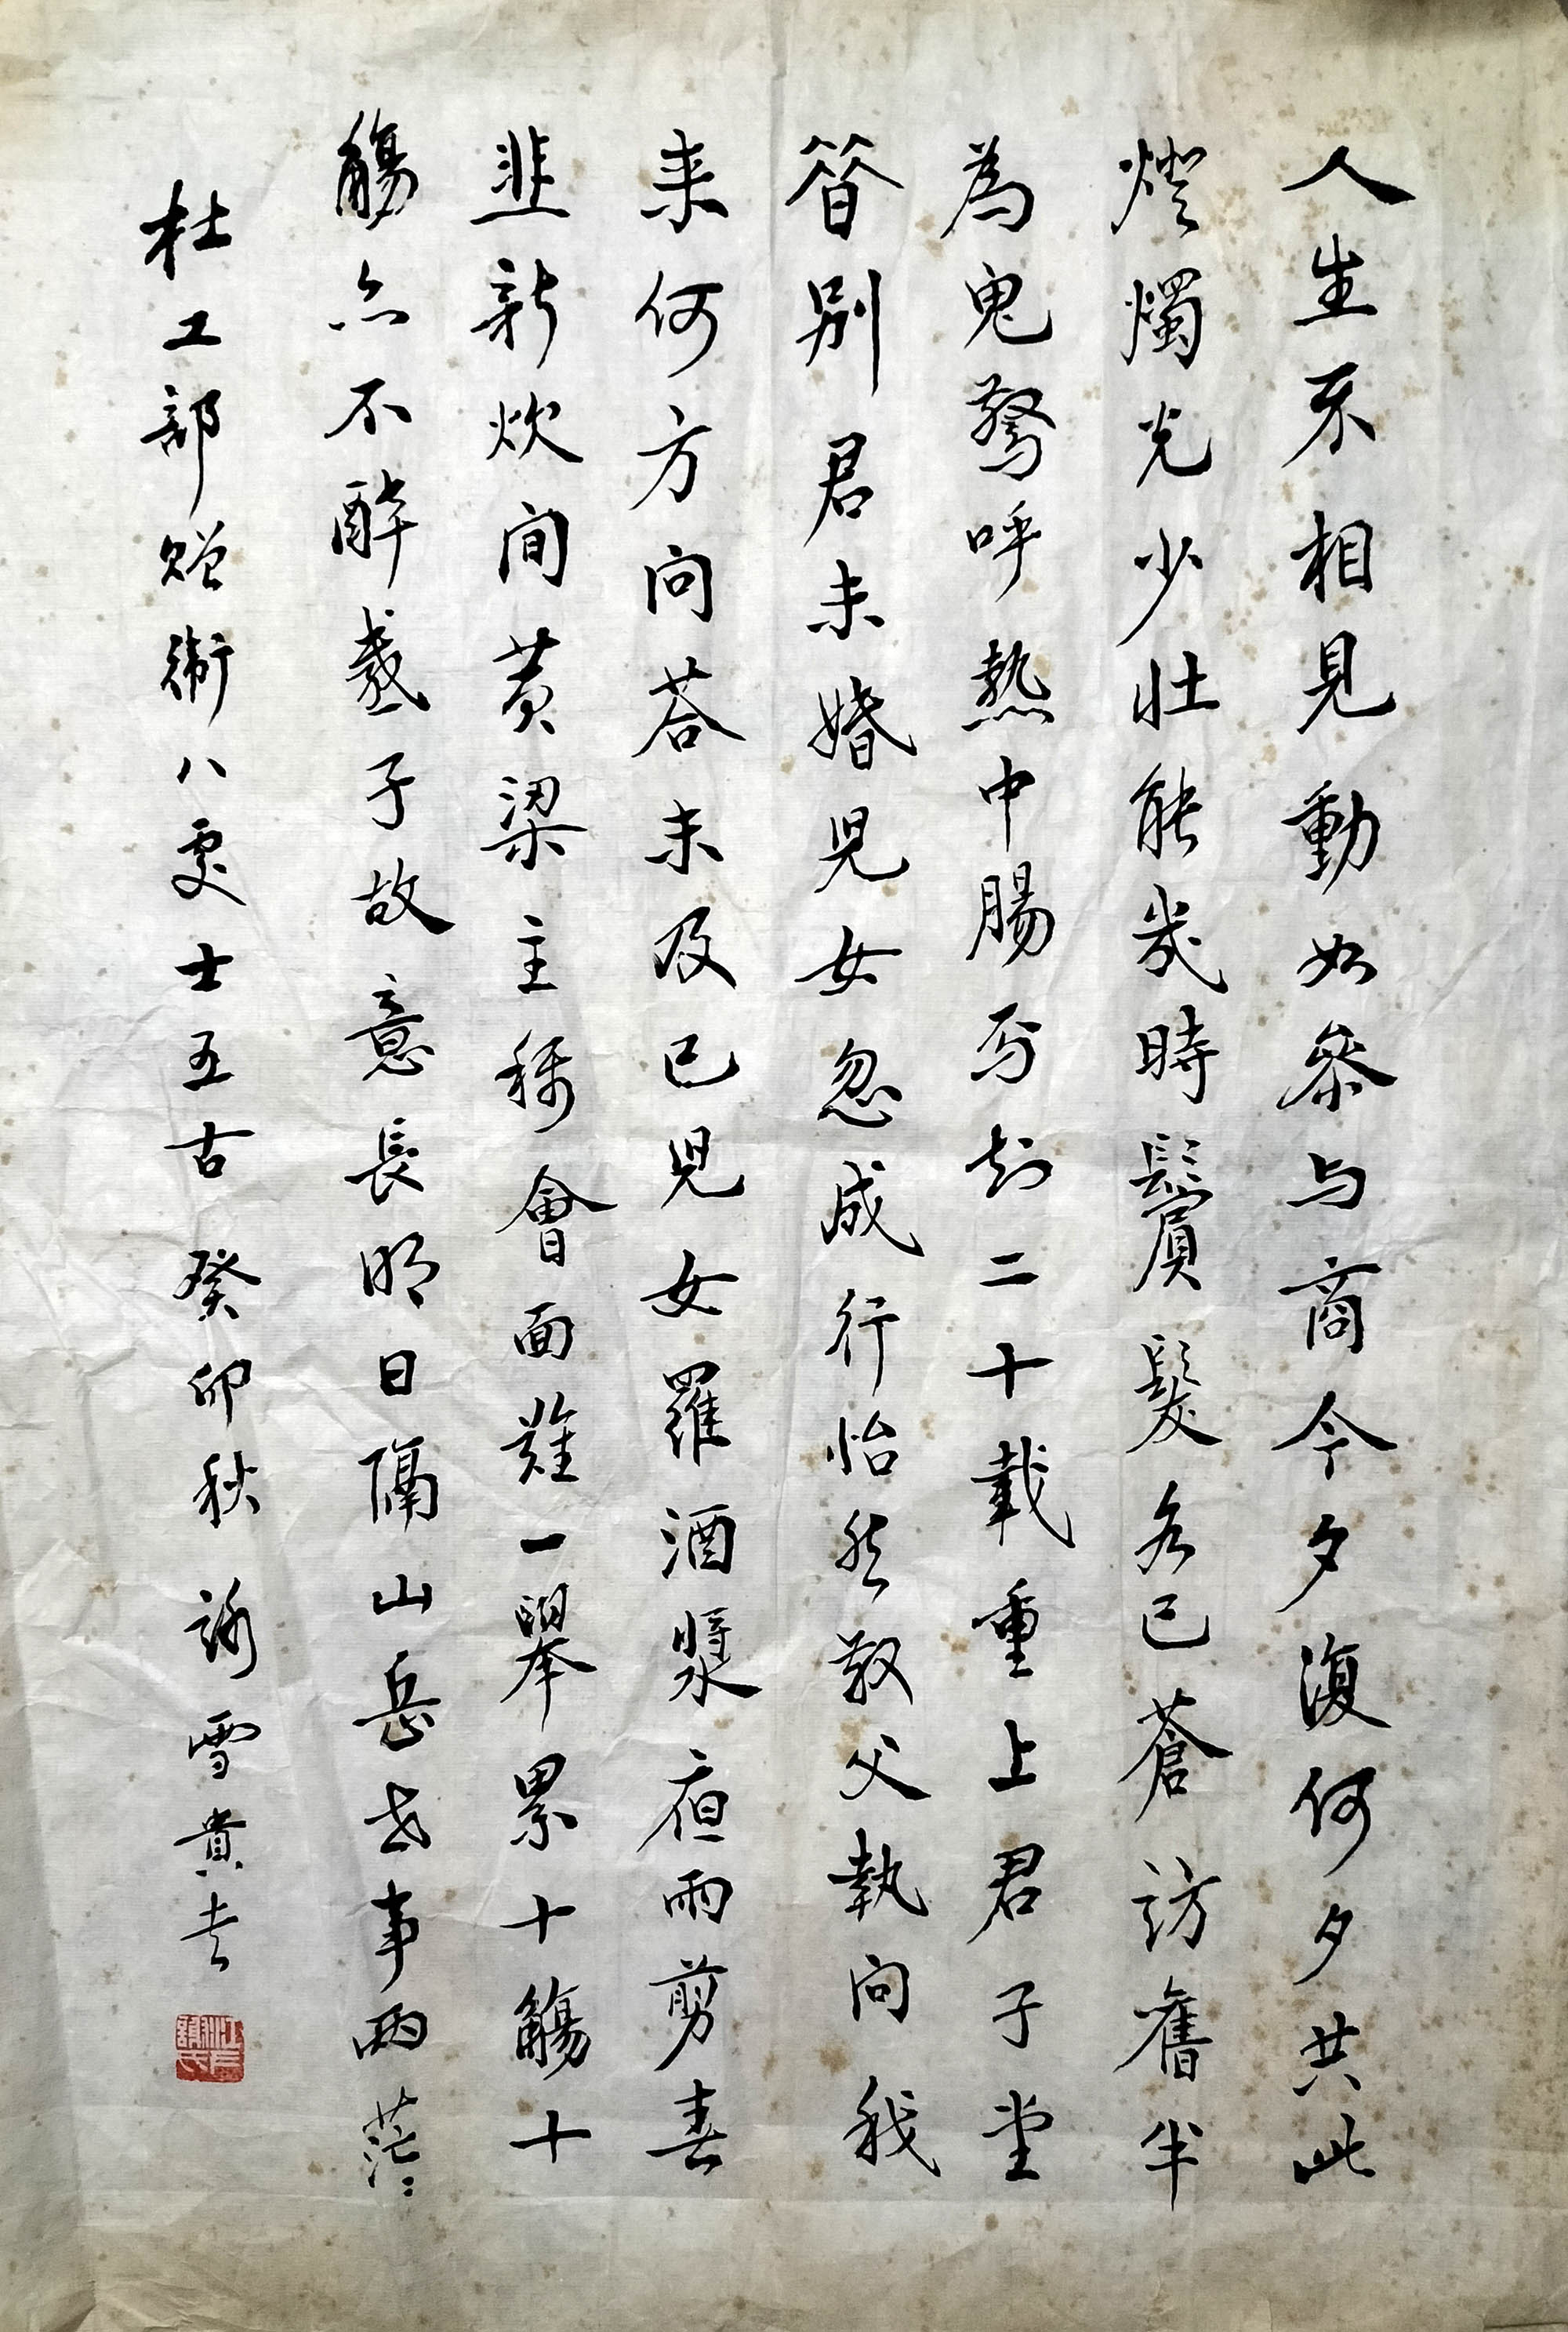 人生不相見動如參与商今夕復何夕共此
燈燭光少壯能幾時鬢髮各已蒼訪舊半
為鬼驚呼熱中腸焉知二十載重上君子堂
昔別君未婚兒女忽成行怡然敬父執問我
来何方問荅未及已兒女羅酒漿夜雨剪春
韭新炊間黃粱主稱會面難一舉累十觴十
觴亦不醉感子故意長明日隔山岳世事兩茫〻
杜工部贈衛八處士五古 癸卯秋 詠雪貴夫